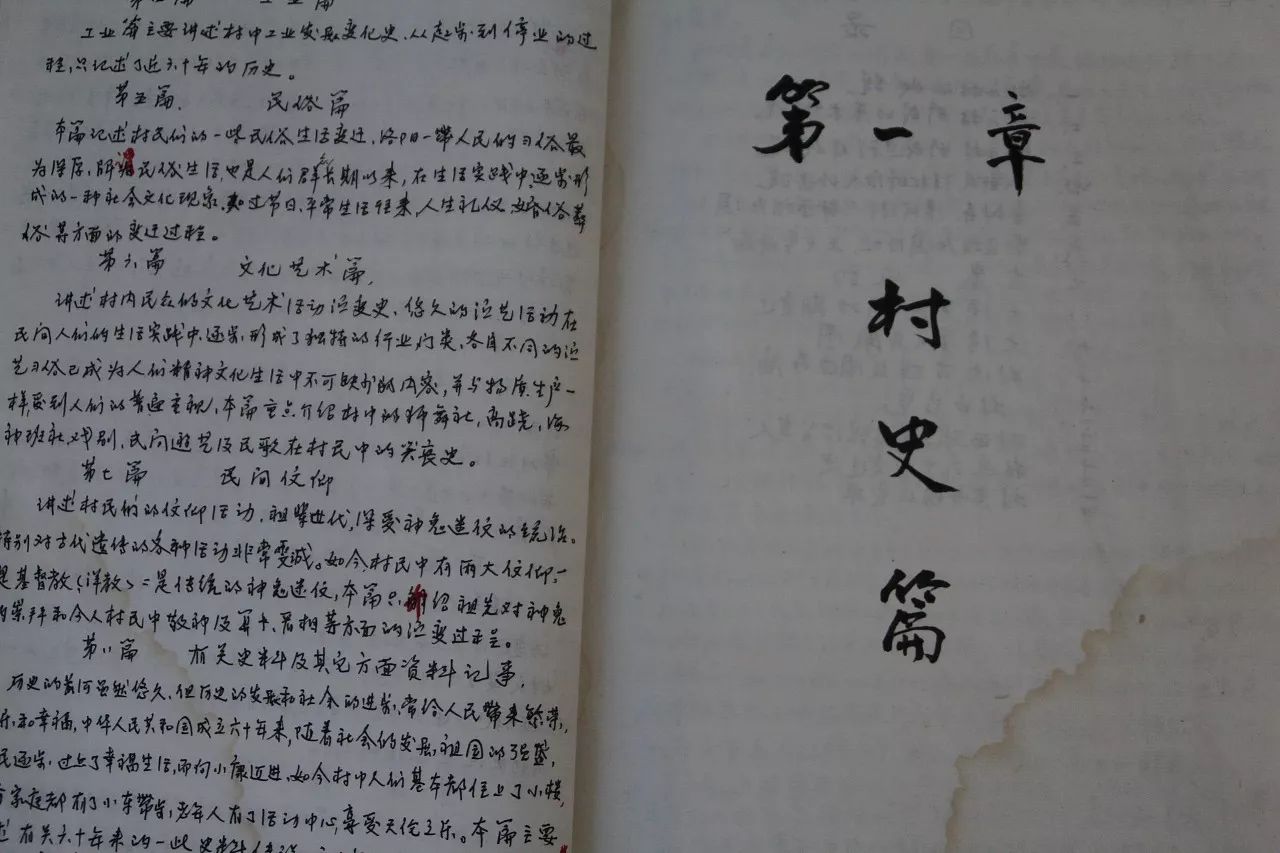 第四篇 工业篇
工业篇主要讲述村中工业发展变化史、从起步到停业的过
程,只记述了近六十年的历史。
第五篇、 民俗篇
本篇记述村民们的一些民俗生活变迁,洛阳一带人民的习俗最
为浑厚,民俗生活,也是人们群长期以来,在生活实践中,逐步形
成的一种社会文化现象,如过节日、平常生活往来,人生礼仪、婚俗葬
俗等方面的变迁过程。
第六篇 文化艺术篇,
讲述村内民众的文化艺术活动演变史、悠久的演艺活动在
民间人们的生活实践中,逐步形成了独特的行业门类,各自不同的演
艺习俗已成为人们精神文化生活中不可缺少的内容,并与物质生产一
样,受到人们的普遍重视,本篇重点介绍村中的狮舞社,高跷,海
神班社、戏剧、民间遊艺及民歌在村民中的兴衰史。
第七篇 民间信仰
讲述村民们的信仰活动,祖辈世代,深受神鬼迷信的统治。
特别对古代遗传的各种活动非常虔诚。如今村民中有两大信仰,一
是基督教(洋教)二是传统的神鬼迷信,本篇只绍祖先对神鬼
的崇拜和今人村民中敬神及算卜、看相等方面的演变过程。
第八篇 有关史料及其它方面资料记事,
历史的黄河虽然悠久、但历史的发展和社会的进步,常给人民带来繁荣,
乐和幸福,中华人民共和国成立六十年来,随着社会的发展,祖国的强盛,
民逐步,过上了幸福生活,而向小康迈进、如今村中人们基本都住上了小楼,
家庭都有了小车,老年人有了活动中心,享受天伦之乐。本篇主要
述有关六十年来的一些史料
第一章
村史篇